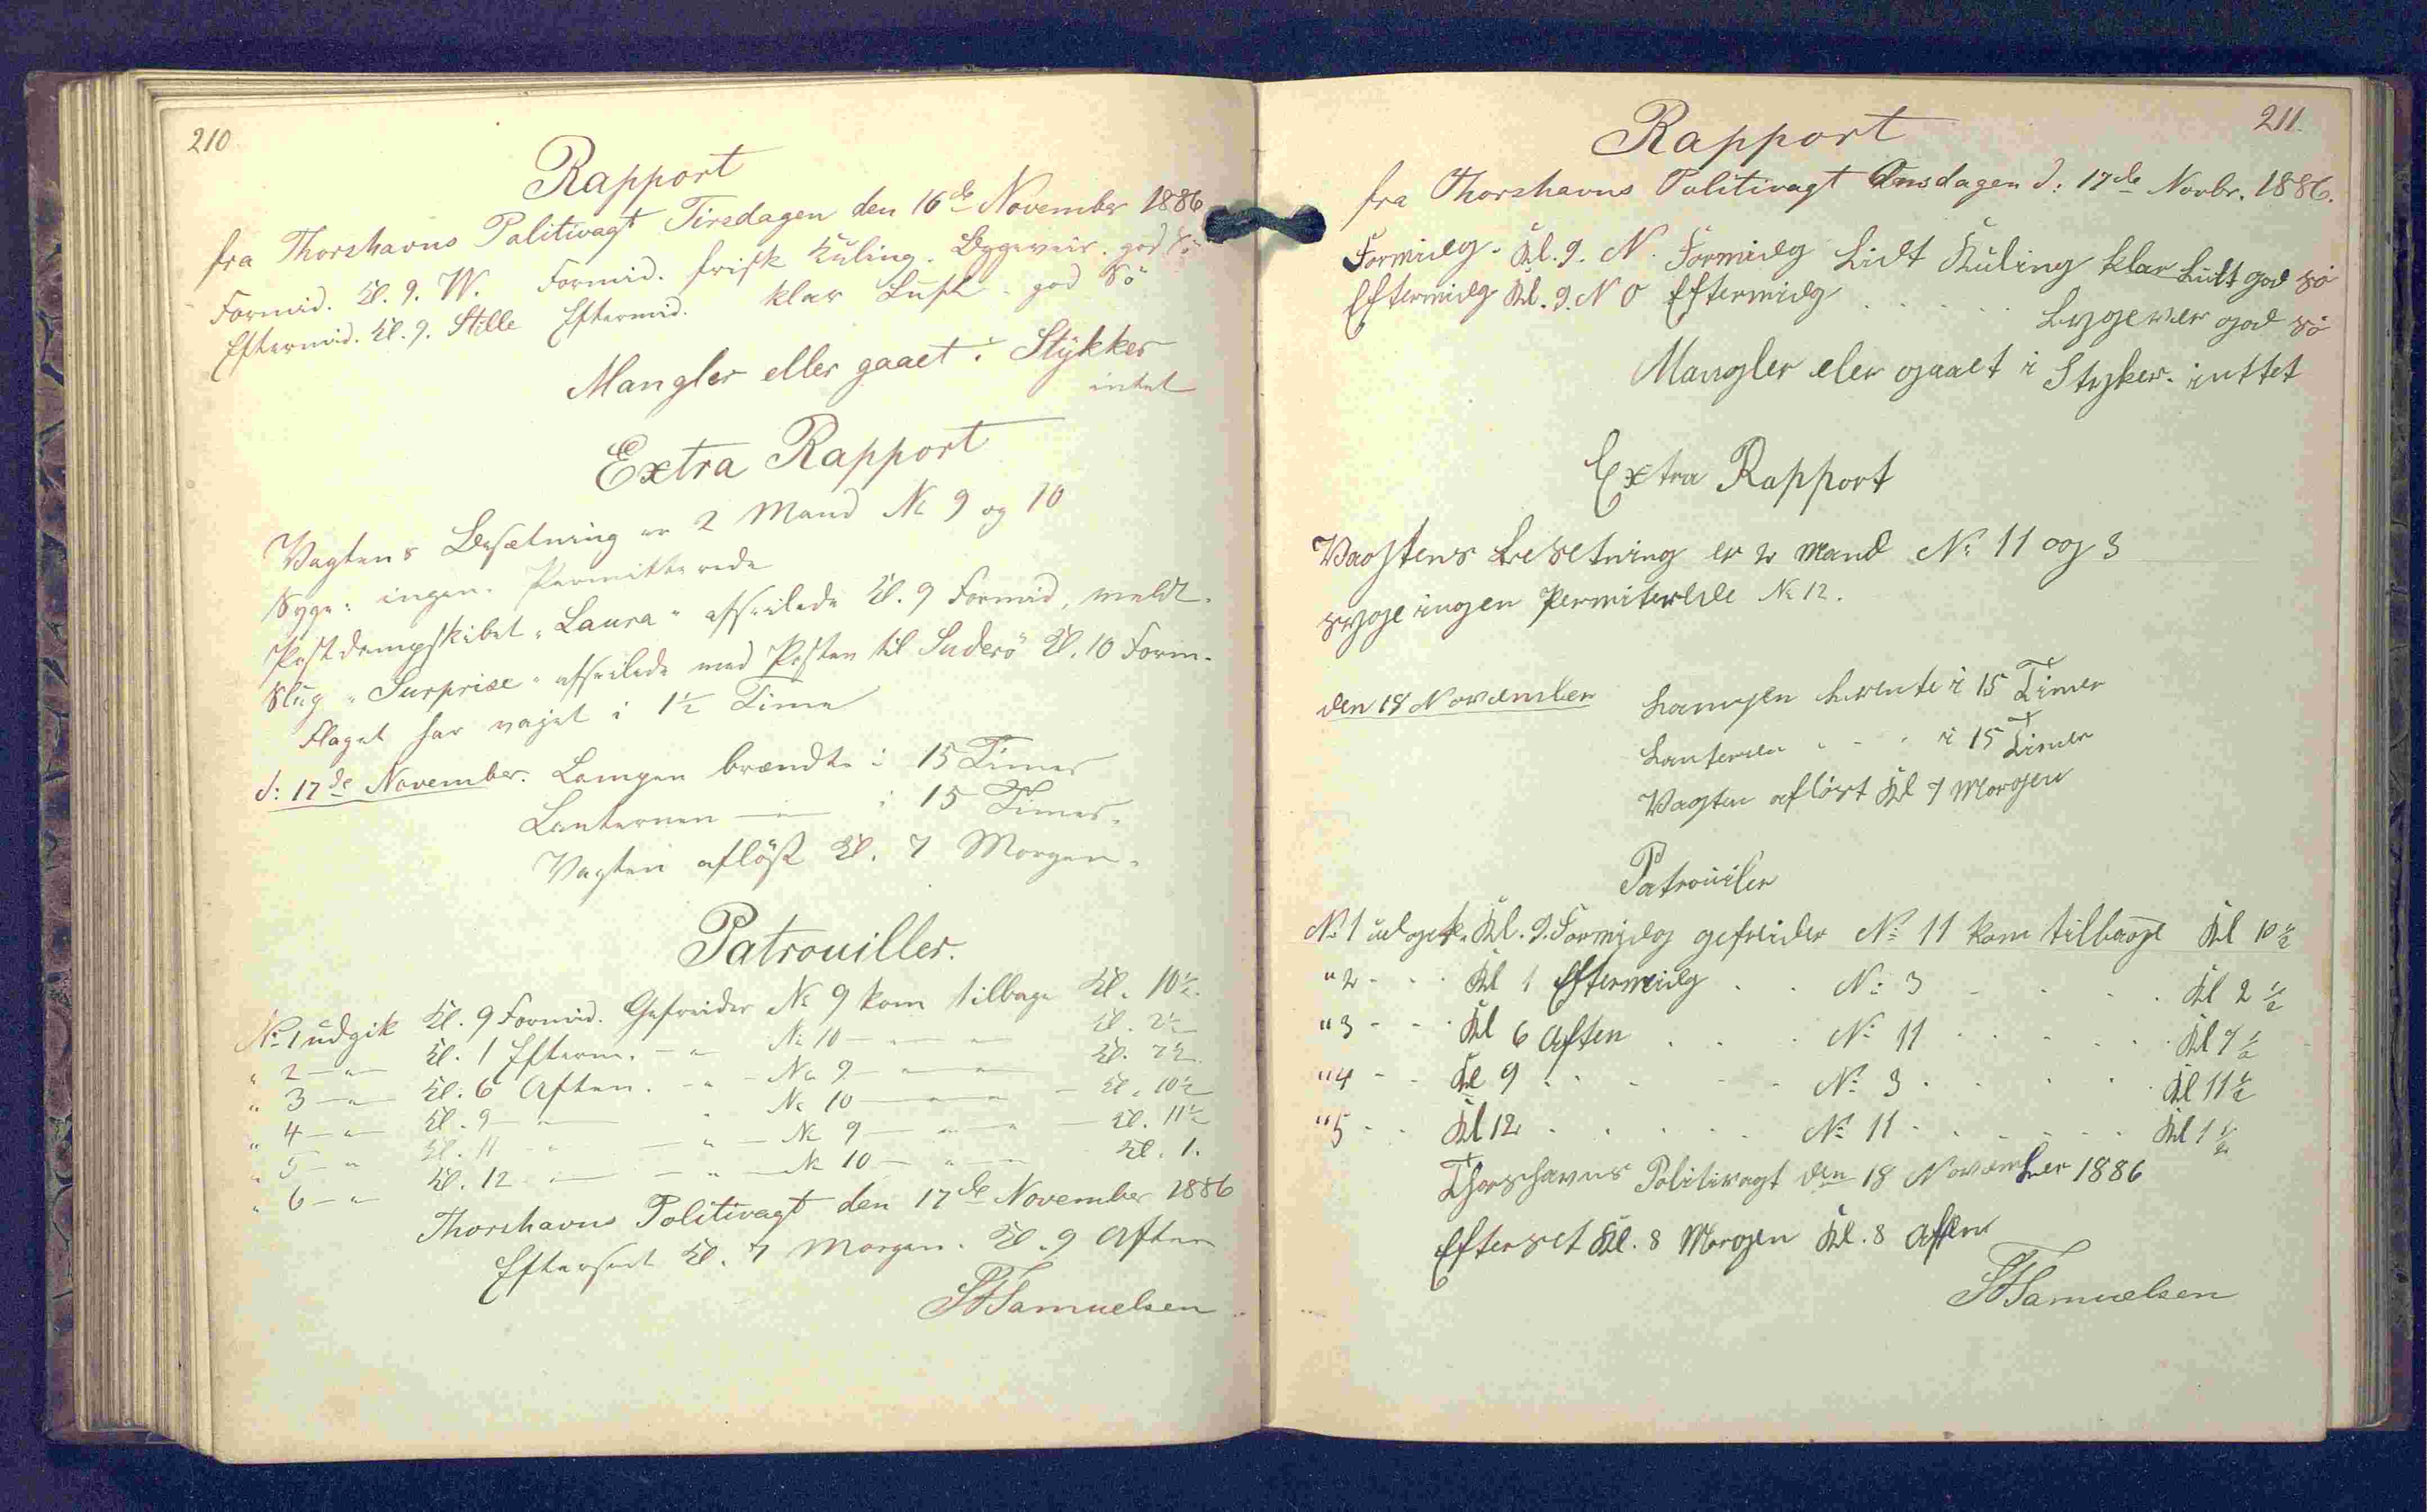 210
Rapport
fra Thorshavns Politivagt Tirsdagen den 16de November 1886
Formid. Kl. 9. W. Formid. frisk Kuling. Byggeveir. god Sö
Eftermid. Kl. 9. Stille Eftermid. klar Luft - god Sö
Mangler eller gaaet i Stykker
intet
Extra Rapport
Vagtens Besætning er 2 Mand No 9 og 10
Syge: ingen. Permitterede
Postdampskibet "Laura" afseilede Kl. 9 Formid, meldt.
Slup "Surprise" afseilede med Posten til Suderö Kl. 10 Form.
Flaget har vajet i 1½ Time
d: 17de November. Lampen brændte i 15 Timer
Lanternen — " — i 15 Timer.
Vagten aflöst Kl. 7 Morgen.
Patrouiller.
No 1 udgik Kl. 9 Formid. Gefreider No 9 kom tilbage Kl. 10½.
" 2 — " — Kl. 1 Efterm. - " No 10 — " — " — Kl. 2½
" 3 — " — Kl. 6 Aften. - " - No 9 — " — " — Kl. 7½.
" 4 — " — Kl. 9 — " — " No 10 — " — " — Kl. 10½
" 5 — " Kl. 11 - " — " — No 9 — " — " — Kl. 11½
" 6 — " — Kl. 12 — " — — " — No 10 — " — Kl. 1.
Thorshavns Politivagt den 17de November 1886
Efterseet Kl. 7 Morgen. Kl. 9 Aften
Samuelsen
211.
Rapport
fra Thorshavns Politivagt Onsdagen d: 17de Novbr. 1886.
Formidg. Kl. 9. N. Formidg Lidt Kuling klar Luft god sö
Eftermidg Kl. 9. N O Eftermidg . . . Bygever god sö
Mangler eler gaaet i Styker. inttet
Extra Rapport
Vagtens besetning er 2 Mand No 11 og 3
syge ingen Permiterede No 12.
den 18 November Lampen brente i 15 Timer
Lanteren " - " i 15 Timer
Vagten aflöst Kl 7 Morgen
Patrouiler
No 1 udgik. Kl. 9. Formidg gefreider No 11 kom tilbage Kl 10½
"2 - - · Kl 1 Eftermidg . . No 3 - . . . Kl 2½
"3 - - · Kl 6 Aften . . . No 11 . . . . . Kl 7½
"4 - - Kl 9 . . - - - No 3 . . . . Kl 11½
"5 - · Kl 12 . . . . . No 11 . . . . . Kl 1½
Thorshavns Politivagt den 18 November 1886
Efterset Kl. 8 Morgen Kl. 8 Aften
Samuelsen